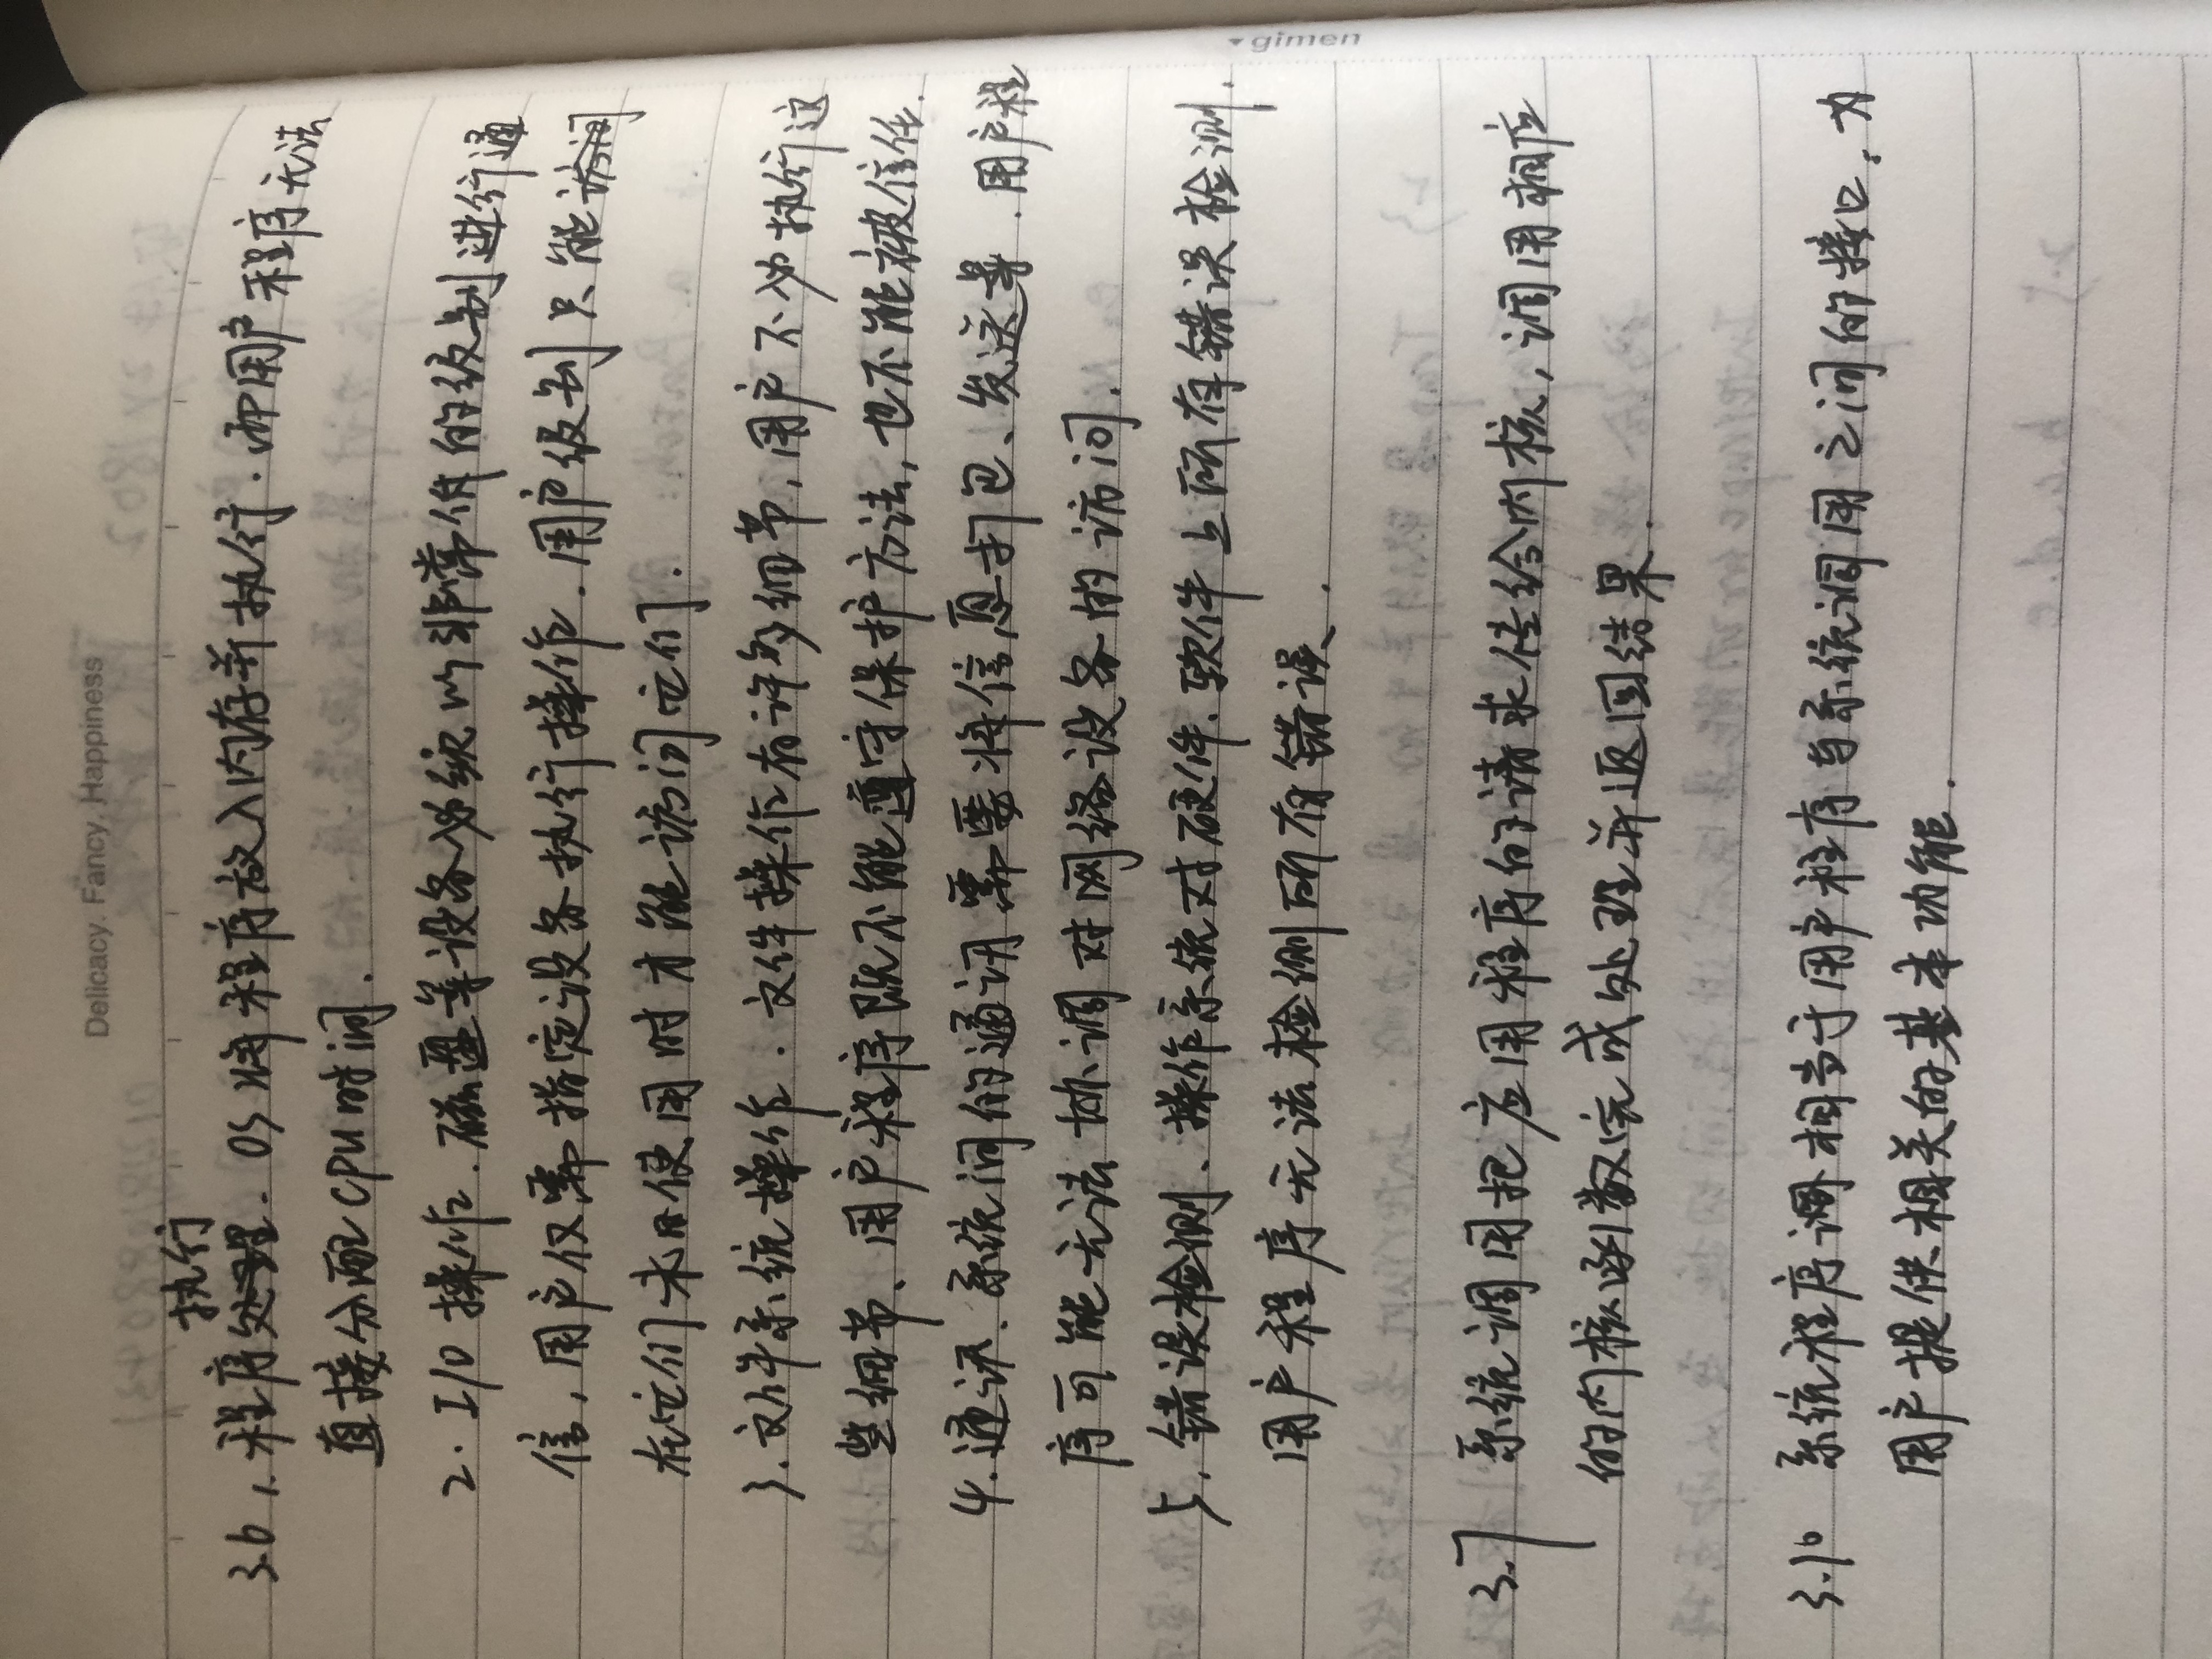 Delicacy. Fancy. Happiness
执行
3.6 1. 程序处理. OS将程序放入内存并执行. 而用户程序无法
直接分配CPU时间.
2. I/O 操作. 磁盘等设备必须以非常低的级别进行通
信, 用户仅需指定设备执行操作. 用户级别只能访问
在它们未用使用时才能访问它们.
3. 文件系统操作. 文件操作有许多细节, 用户不必执行这
些细节、用户程序既不能遵守保护方法, 也不能被信任.
4. 通讯、系统间的通讯需要将信息打包、发送等. 用户程
序可能无法协调对网络设备的访问.
5. 错误检测、操作系统对硬件、软件上所有错误检测.
用户程序无法检测所有错误.
3.7 系统调用把应用程序的请求传给内核, 调用相应
的内核函数完成处理并返回结果.
3.10 系统程序调相当于用户程序与系统调用之间的接口, 为
用户提供相关的基本功能.
gimen